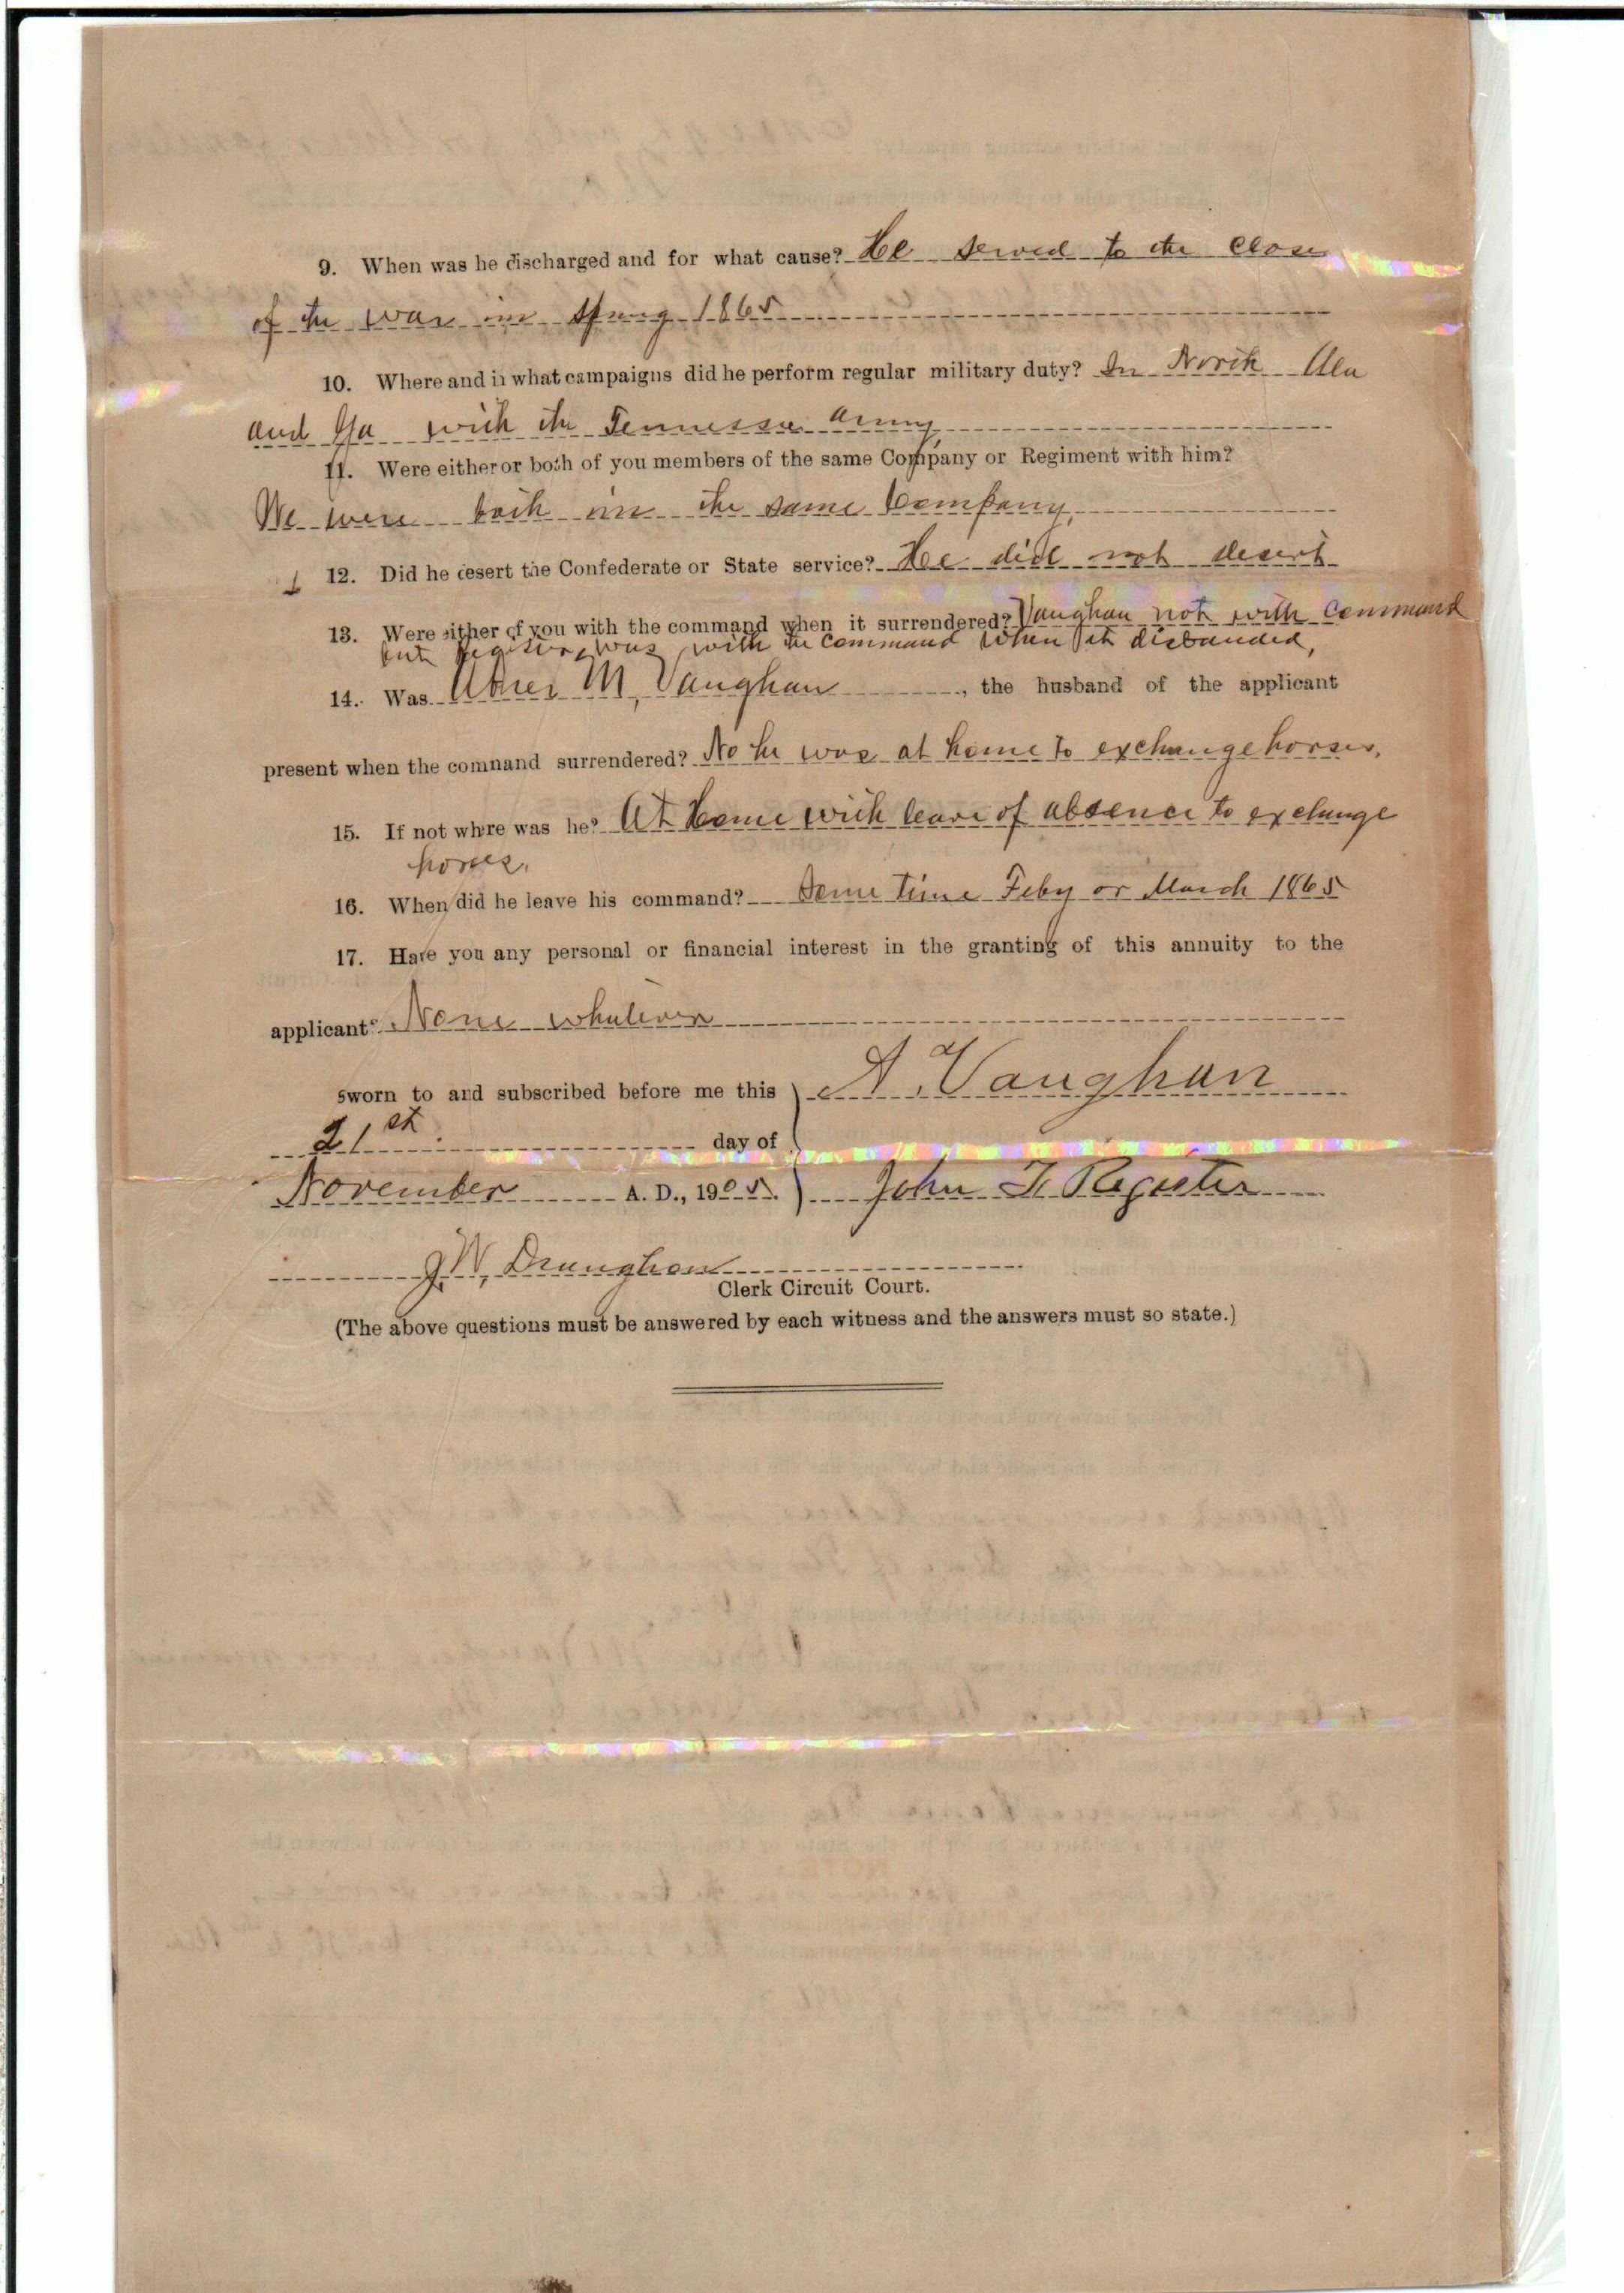 9. When was he discharged and for what cause? He served to the close
of the war in spring 1865
10. Where and in what campaigns did he perform regular military duty? In North Ala
and Ga with the Tennessee army
11. Were either or both of you members of the same Company or Regiment with him?
We were both in the same Company,
12. Did he desert the Confederate or State service? He did not desert
13. Were either of you with the command when it surrendered? Vaughan not with command
but Register was with the command when it disbanded,
14. Was Abner M, Vaughan, the husband of the applicant
present when the command surrendered? No he was at home to exchange horses,
15. If not where was he? At Home with leave of absence to exchange
horses.
16. When did he leave his command? Some time Feby or March 1865
17. Have you any personal or financial interest in the granting of this annuity to the
applicant? None whatever
sworn to and subscribed before me this A. Vaughan
21st. day of
November A. D., 1905. John T. Register
J. W. Draughon
Clerk Circuit Court.
(The above questions must be answered by each witness and the answers must so state.)